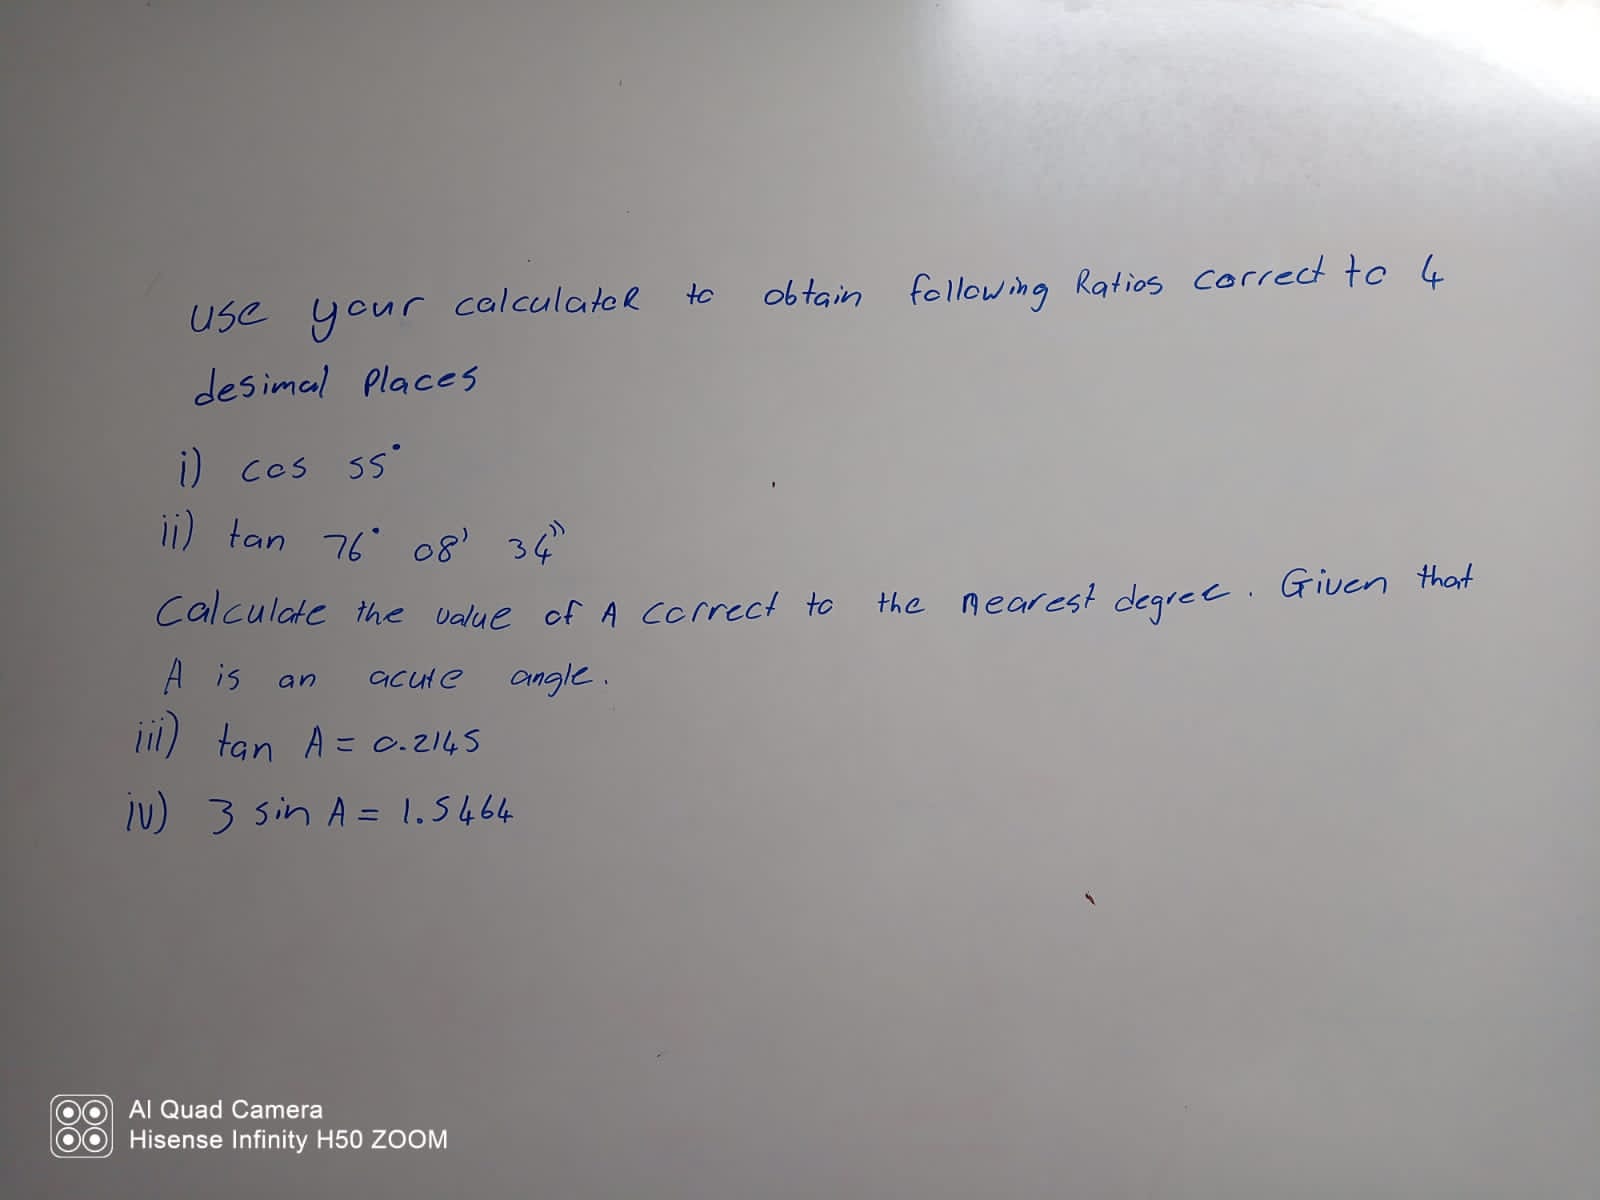 use your calculator to obtain following Ratios correct to 4
desimal Places
i) cos 55°
ii) tan 76° 08' 34"
Calculate the value of A correct to the nearest degree. Given that
A is an acute angle.
iii) tan A = 0.2145
iv) 3 sin A = 1.5464
AI Quad Camera
Hisense Infinity H50 ZOOM